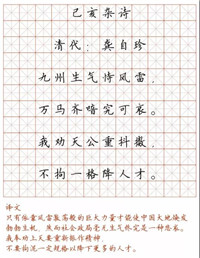 己亥杂诗
清代：龚自珍
九州生气恃风雷，
万马齐喑究可哀。
我劝天公重抖擞，
不拘一格降人才。
译文
只有依靠风雷激荡般的巨大力量才能使中国大地焕发
勃勃生机，然而社会政局毫无生气终究是一种悲哀。
我奉劝上天要重新振作精神
不要拘泥一定规格以降下更多的人才。